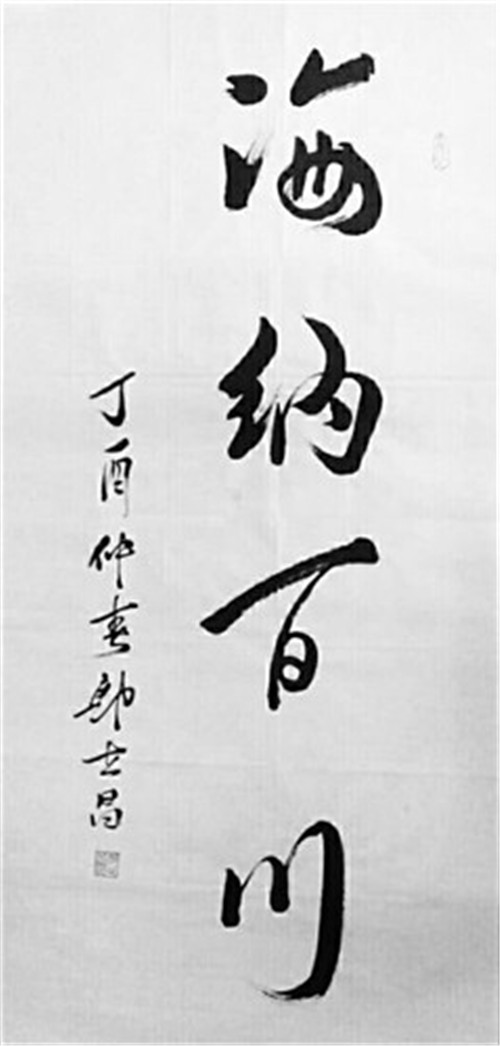 海纳百川
丁酉仲春郎士昌